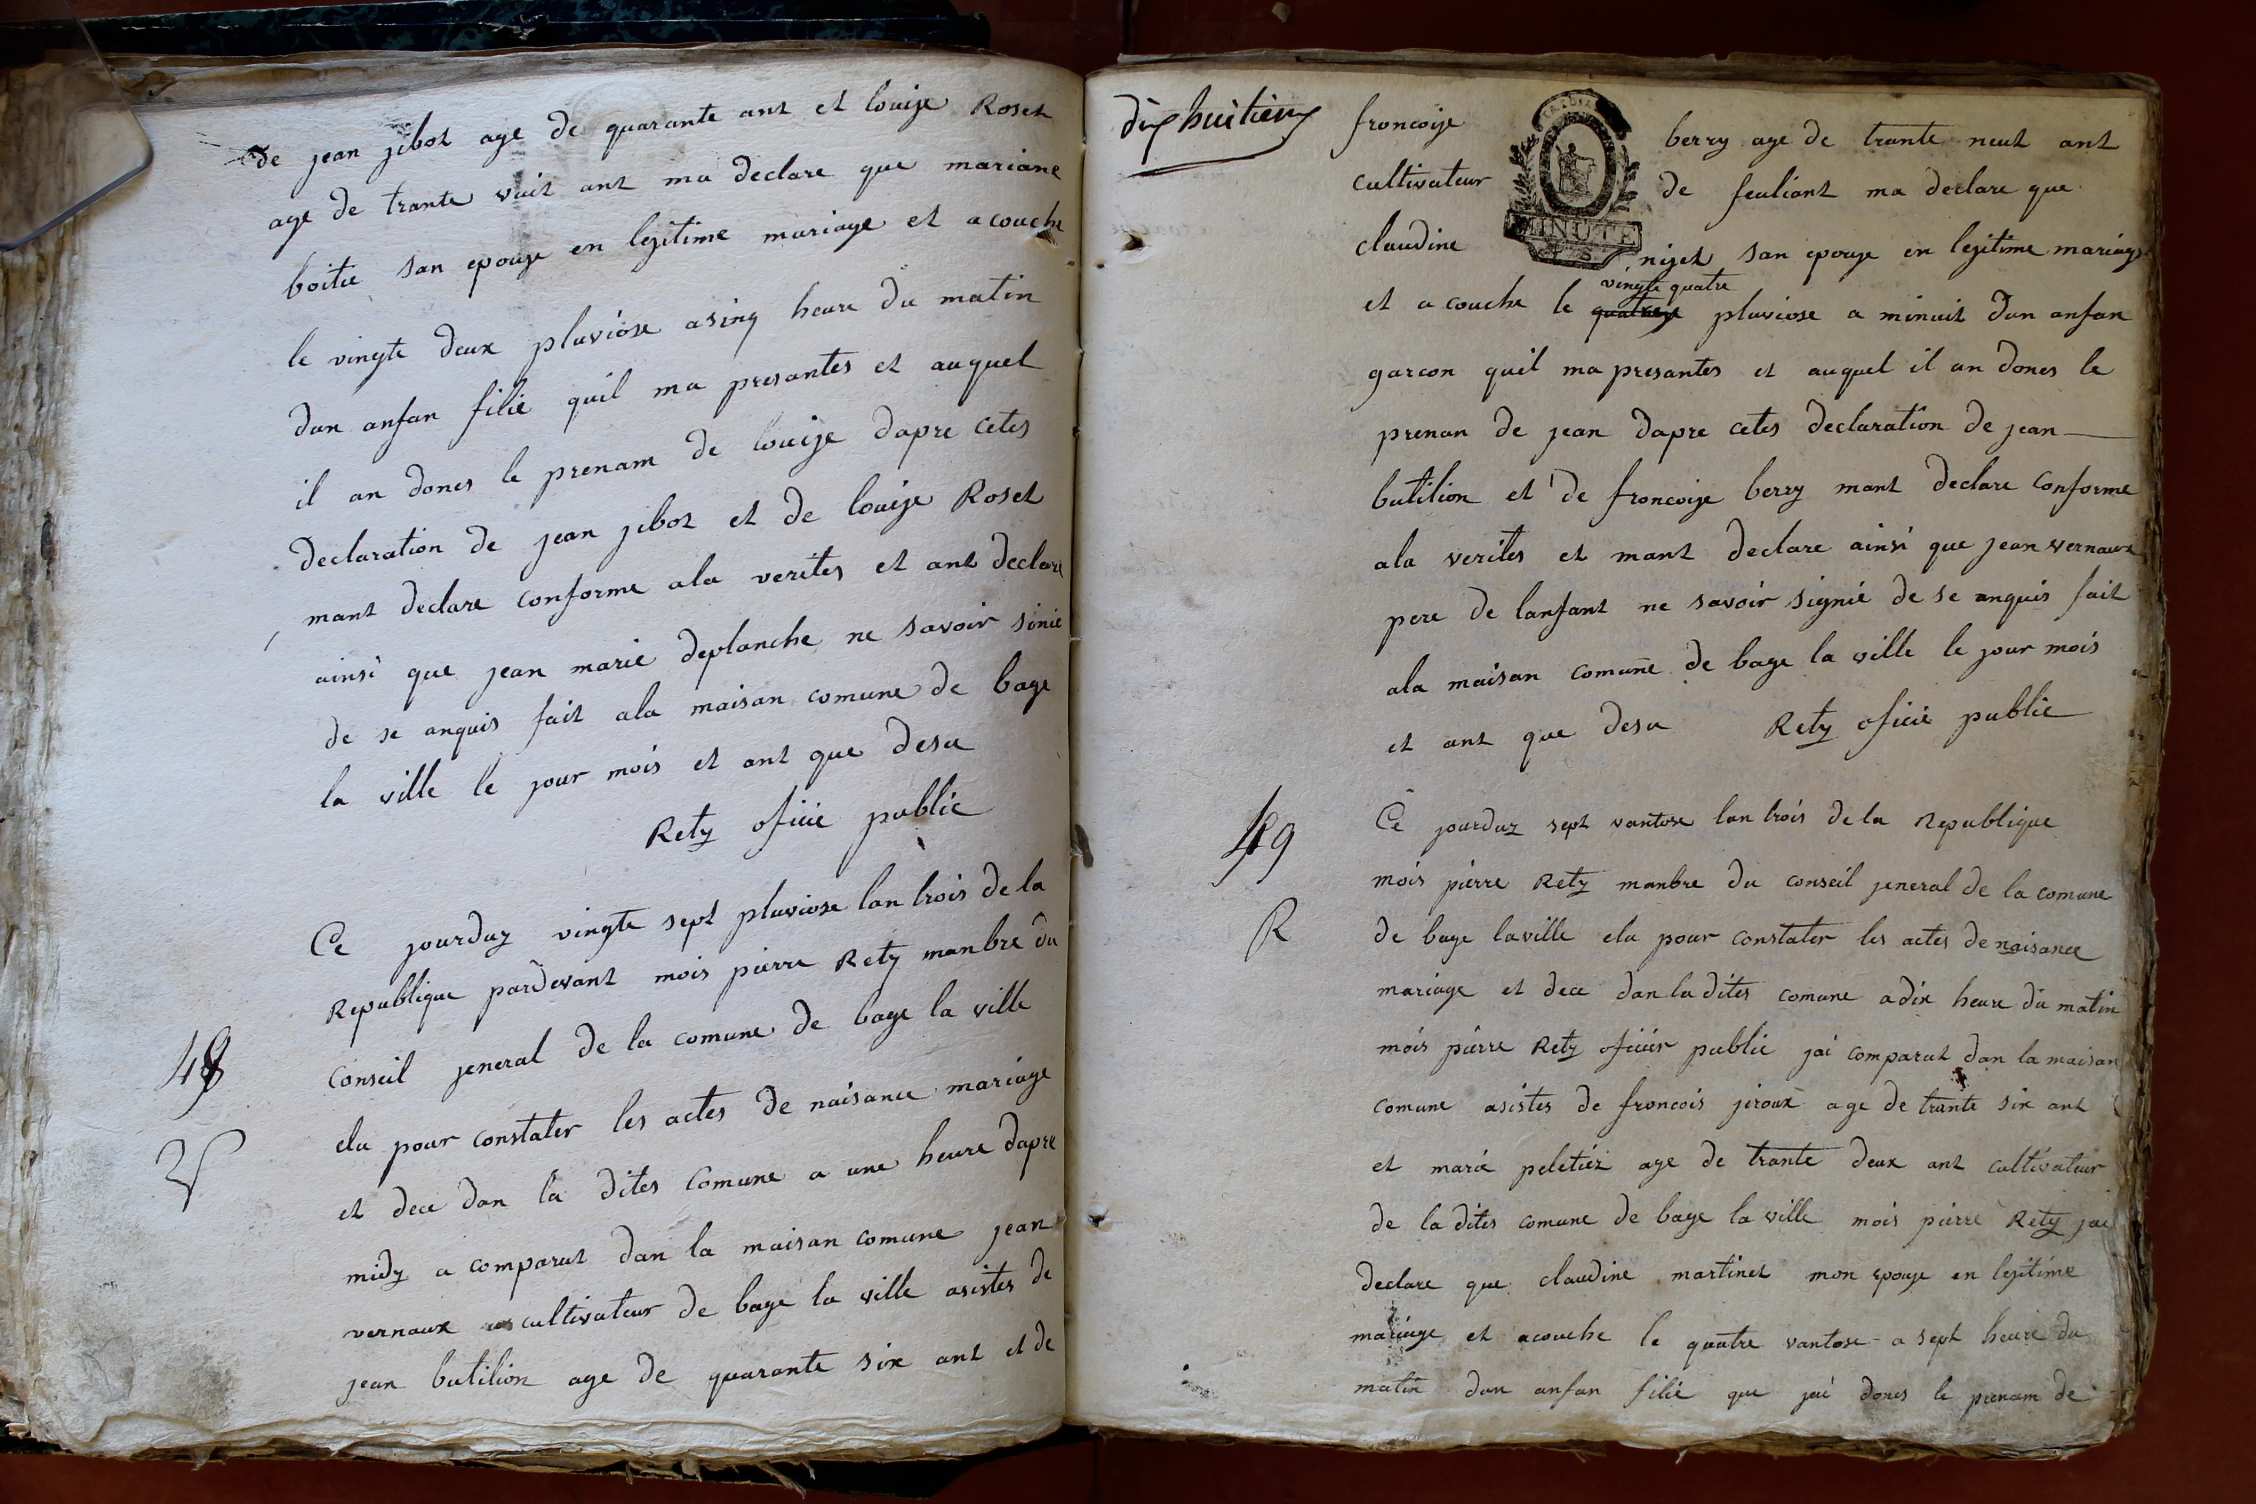 de jean jibot age de quarante ant et louise Roset
age de trante vuit ant ma declare que mariane
boitie san epouse en lejitime mariage et a couche
le vingte deux pluviose a sinq heure du matin
dun anfan filie quil ma presantes et auquel
il an dones le prenam de louise dapre cetes
declaration de jean jibot et de louise Roset
mant declare conforme ala verites et ant declare
ainsi que jean marie deplanche ne savoir sinie
de se anquis fait ala maisan comune de bage
la ville le jour mois et ant que desu
Rety oficie public
Ce jourduy vingte sept pluviose lan trois de la
Republique pardevant mois pierre Rety manbre du
48
conseil jeneral de la comune de bage la ville
elu pour constater les actes de naisance mariage
et dece dan la dites comune a une heure dapre
midy a comparut dan la maisan comune jean
vernaux cultivateur de bage la ville asistes de
jean butilion age de quarante six ant et de
dix huitiem
francoise berry age de trante neut ant
cultivateur de feuliant ma declare que
MINUTE
claudine nizet san epouse en lejitime mariage
vingte quatre
et a couche le pluviose a minuit dun anfan
garcon quil ma presantes et auquel il an dones le
prenan de jean dapre cetes declaration de jean
butilion et de francoise berry mant declare conforme
ala verites et mant declare ainsi que jean vernaux
pere de lanfant ne savoir signie de se anquis fait
ala maisan comune de bage la ville le jour mois
et ant que desu Rety oficie public
49
Ce jourduy sept vantose lan trois de la Republique
mois pierre Rety manbre du conseil jeneral de la comune
R
de bage laville elu pour constater les actes de naisance
mariage et dece dan la dites comune a dix heure du matin
mois pierre Rety oficier public jai comparut dan la maisan
comune asistes de francois jiroux age de trante six ant
et marie peletiez age de trante deux ant cultivateur
de la dites comune de bage la ville mois pierre Rety jai
declare que claudine martinet mon epouse en lejitime
mariage et acouche le quatre vantose a sept heure du
matin dun anfan filie que jai dones le prenam de